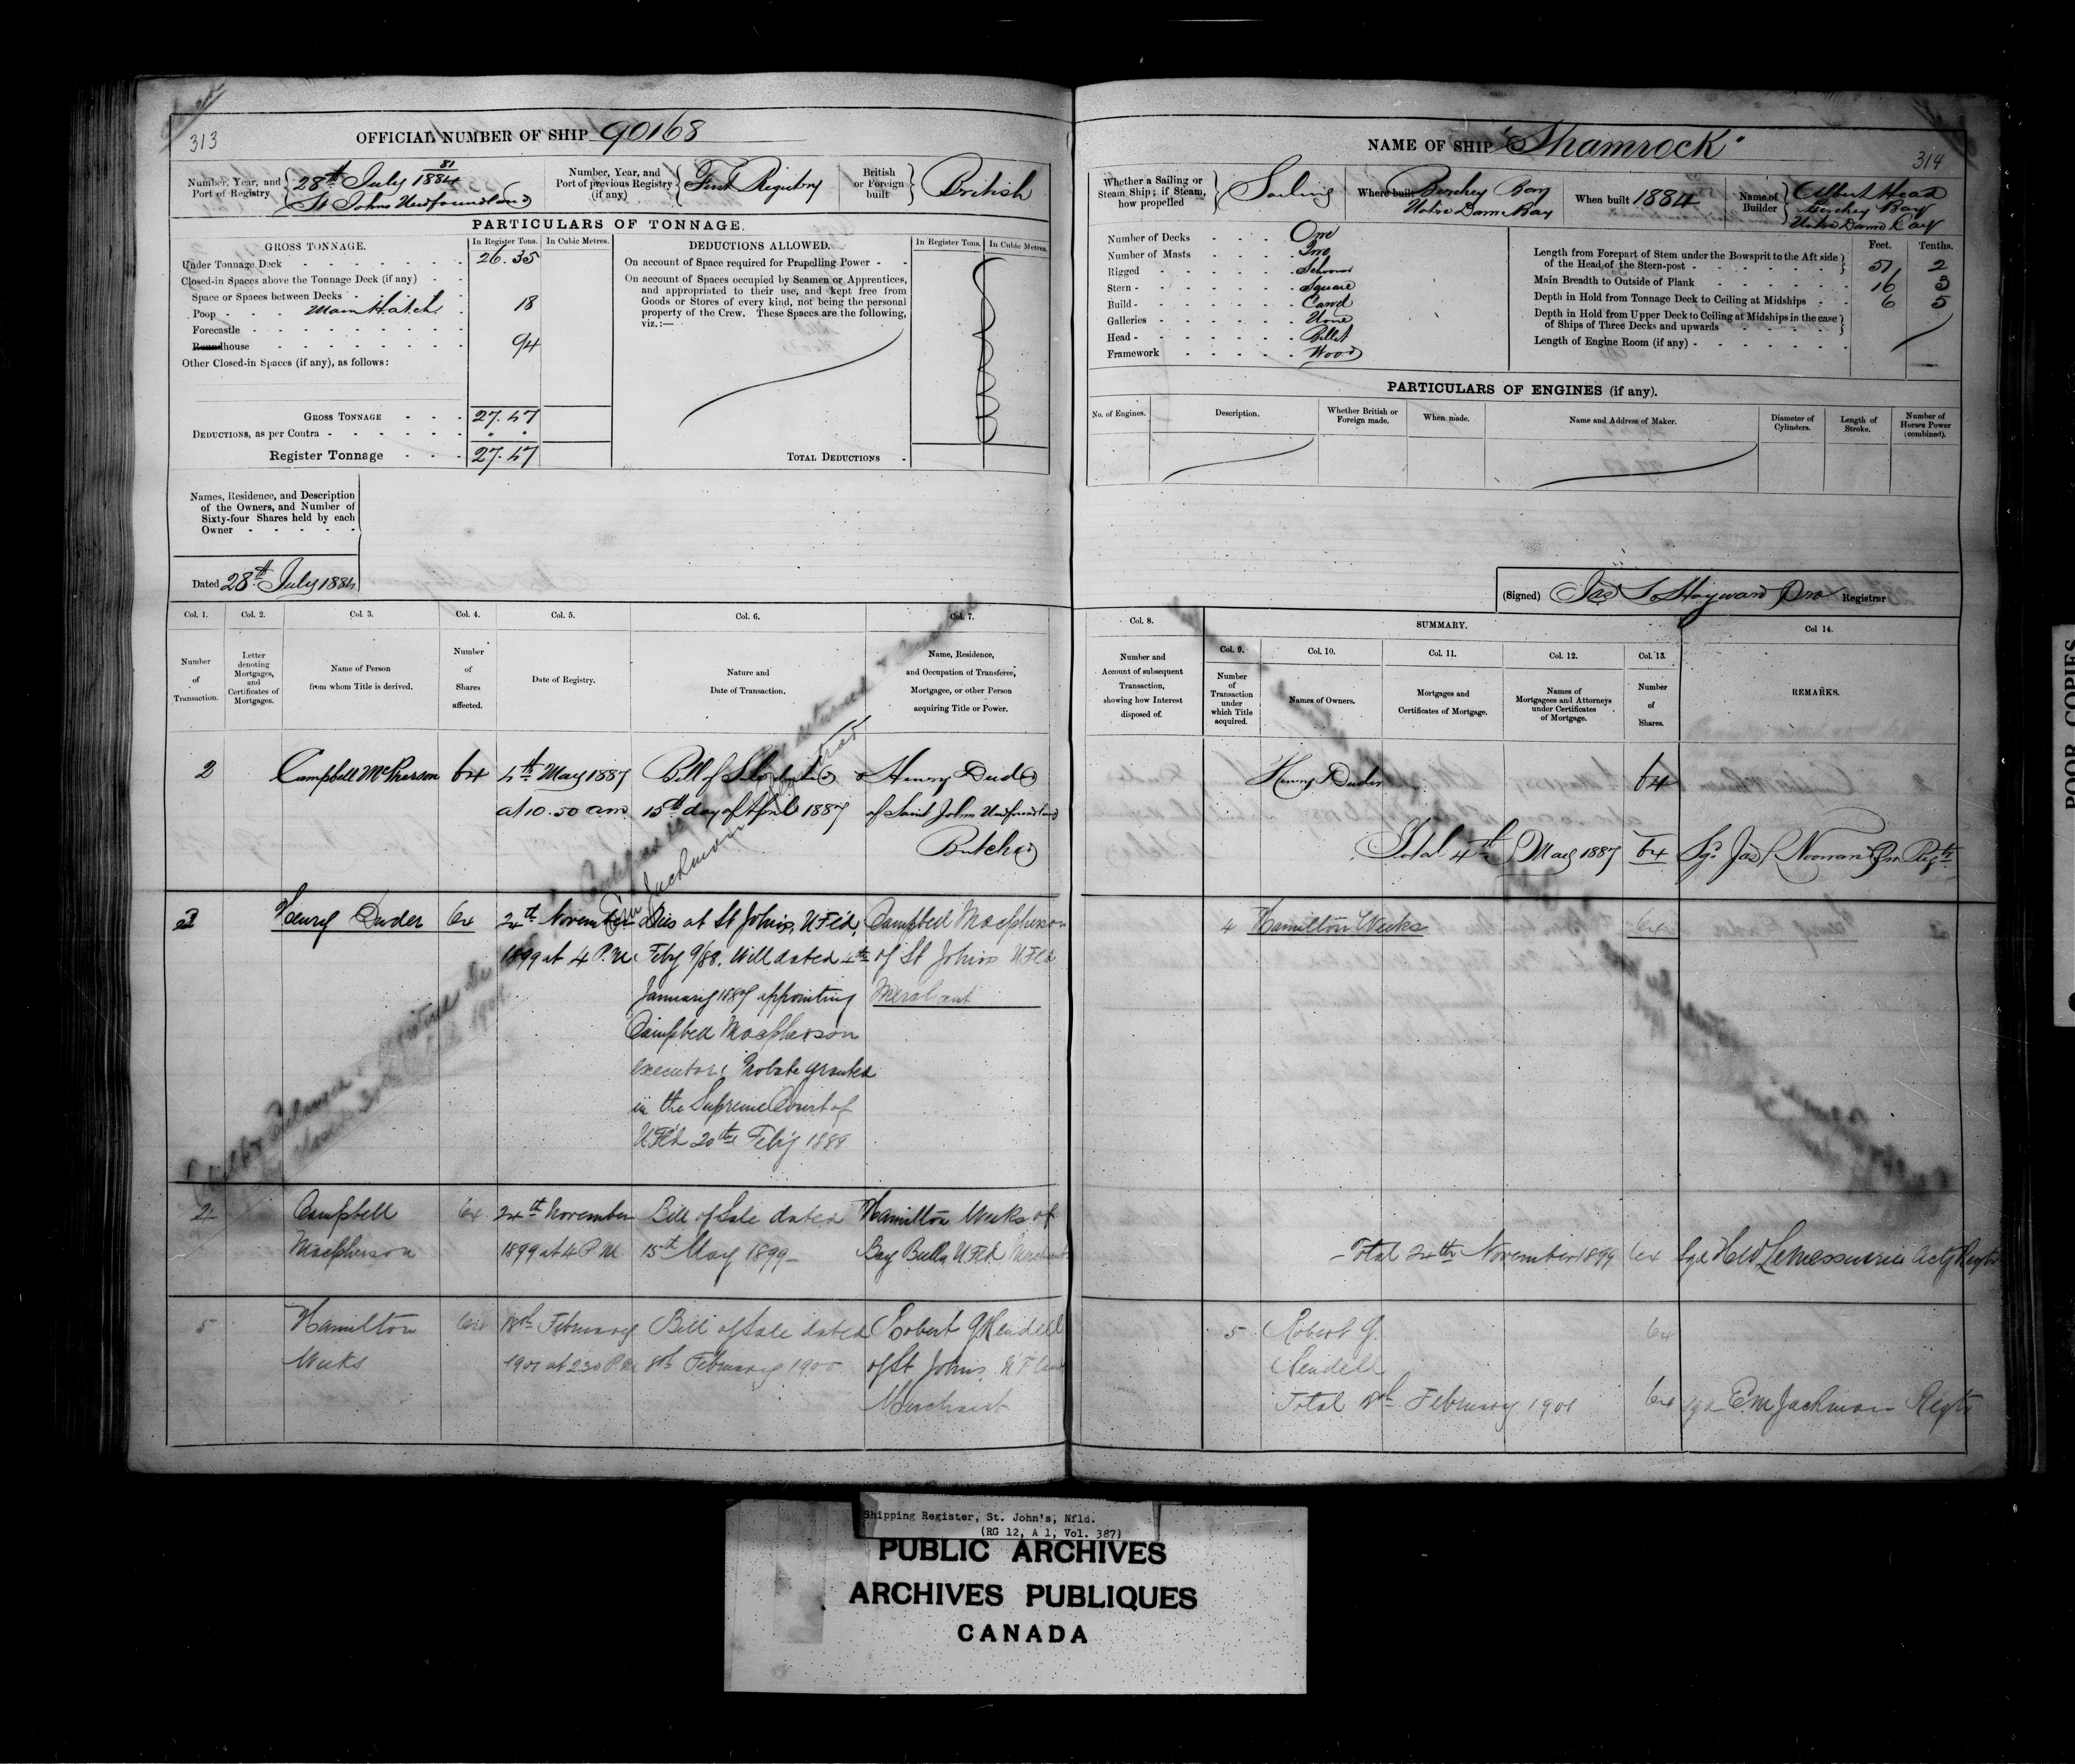 313
OFFICIAL NUMBER OF SHIP 90168
Number, Year, and Port of Registry
81
28th July 1884
St Johns Newfoundland
Number, Year, and Port of previous Registry (if any)
First Registry
British or Foreign built
British
PARTICULARS OF TONNAGE.
GROSS TONNAGE.
In Register Tons.
In Cubic Metres.
DEDUCTIONS ALLOWED.
In Register Tons.
In Cubic Metres.
Under Tonnage Deck 26.35
Closed-in Spaces above the Tonnage Deck (if any)
Space or Spaces between Decks
Poop Main Hatch 18
Forecastle
Roundhouse 94
Other Closed-in Spaces (if any), as follows:
GROSS TONNAGE 27.47
DEDUCTIONS, as per Contra
Register Tonnage 27.47
On account of Space required for Propelling Power
On account of Spaces occupied by Seamen or Apprentices,
and appropriated to their use, and kept free from
Goods or Stores of every kind, not being the personal
property of the Crew. These Spaces are the following,
viz.:—
TOTAL DEDUCTIONS
Names, Residence, and Description
of the Owners, and Number of
Sixty-four Shares held by each
Owner
Dated 28th July 1884
Col. 1.
Col. 2.
Col. 3.
Col. 4.
Col. 5.
Col. 6.
Col. 7.
Number of Transaction.
Letter denoting Mortgages, and Certificates of Mortgages.
Name of Person from whom Title is derived.
Number of Shares affected.
Date of Registry.
Nature and Date of Transaction.
Name, Residence, and Occupation of Transferee, Mortgagee, or other Person acquiring Title or Power.
2
Campbell McPherson
64
4th May 1887
at 10.50 am
Bill of Sale dated
15th day of April 1887
Henry Duder
of Saint Johns Newfoundland
Butcher
3
Henry Duder
64
24th November
1899 at 4 P.M
Dies at St Johns, NFld,
Feby 9/88. Will dated 4th
January 1887 appointing
Campbell Macpherson
executor; Probate granted
in the Supreme Court of
NFld 20th Feby 1888
Campbell Macpherson
of St Johns NFld
Merchant
Campbell
Macpherson
64
24th November
1899 at 4 P.M
Bill of Sale dated
15th May 1899
Hamilton Weeks of
Bay Bulls NFld Merchant
5
Hamilton
Weeks
64
18th February
1901 at 2.30 P.M
Bill of Sale dated
8th February 1900
Robert G Rendell
of St Johns, NFland
Merchant
NAME OF SHIP "Shamrock"
314
Whether a Sailing or Steam Ship; if Steam, how propelled
Sailing
Where built
Burchey Bay
Notre Dame Bay
When built 1884
Name of Builder
Albert Head
Burchey Bay
Notre Dame Bay
Number of Decks One
Number of Masts Two
Rigged Schooner
Stern Square
Build Carvel
Galleries None
Head Billet
Framework Wood
Feet.
Tenths.
Length from Forepart of Stem under the Bowsprit to the Aft side
of the Head of the Stern-post 51 2
Main Breadth to Outside of Plank 16 3
Depth in Hold from Tonnage Deck to Ceiling at Midships 6 5
Depth in Hold from Upper Deck to Ceiling at Midships in the case
of Ships of Three Decks and upwards
Length of Engine Room (if any)
PARTICULARS OF ENGINES (if any).
No. of Engines.
Description.
Whether British or Foreign made.
When made.
Name and Address of Maker.
Diameter of Cylinders.
Length of Stroke.
Number of Horses Power (combined).
(Signed) Jas S Hayward Pro Registrar
Col. 8.
SUMMARY.
Col 14.
Col. 9.
Col. 10.
Col. 11.
Col. 12.
Col. 13.
Number and Account of subsequent Transaction, showing how Interest disposed of.
Number of Transaction under which Title acquired.
Names of Owners.
Mortgages and Certificates of Mortgage.
Names of Mortgagees and Attorneys under Certificates of Mortgage.
Number of Shares.
REMARKS.
Henry Duder
64
Total 4th May 1887 64 Sgd Jas L Noonan Pro Regtr
4 Hamilton Weeks 64
Total 24th November 1899 64 Sgd H W LeMessurier Actg Regtr
5 Robert G.
Rendell
64
Total 18th February 1901 64 sgd E.M Jackman Regtr
POOR COPIES
Shipping Register, St. John's, Nfld.
(RG 12, A 1, Vol. 387)
PUBLIC ARCHIVES
ARCHIVES PUBLIQUES
CANADA